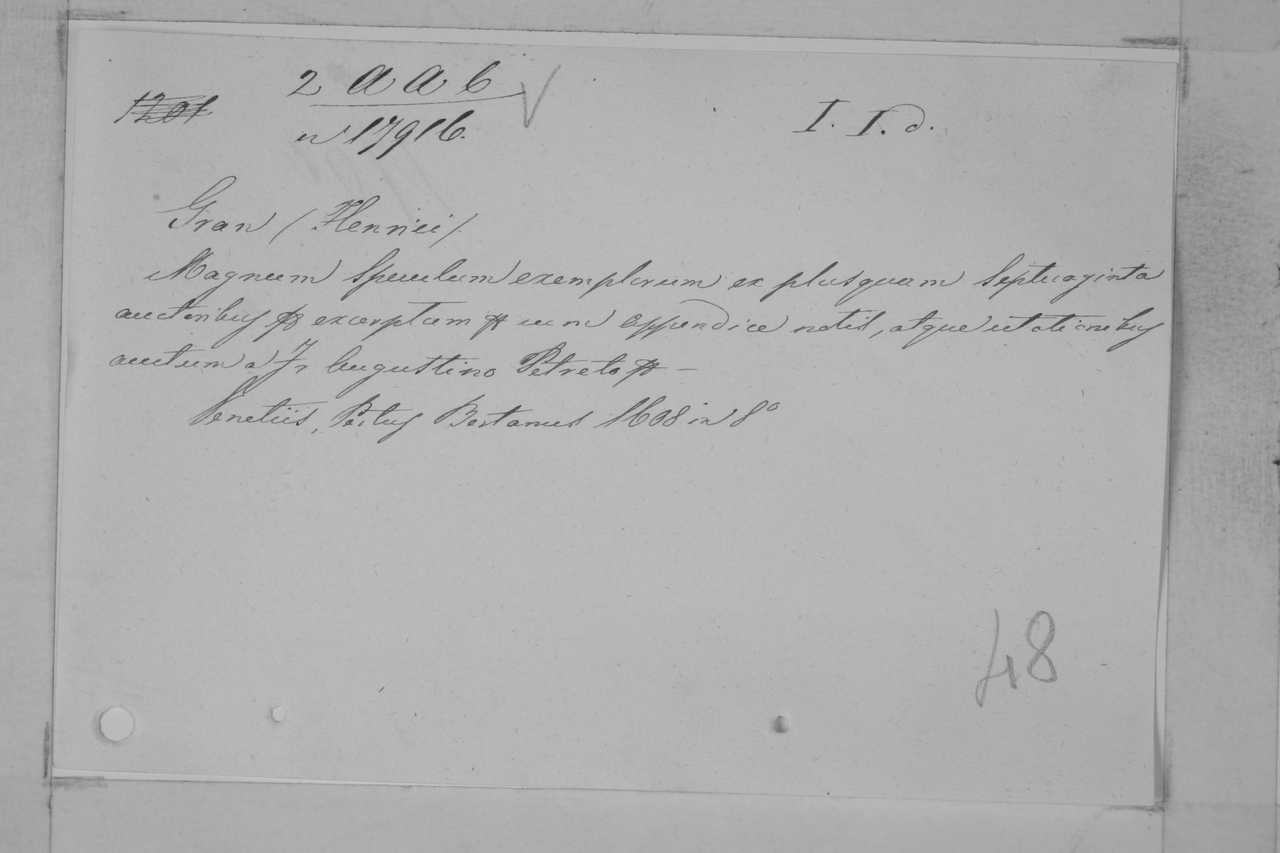 1201
2 a a b
n° 17916.
I. I. d.
Gran (Henrici)
Magnum Speculum exemplorum ex plusquam Septuaginta
auctoribus excerptum cum appendice notis, atque citationibus
auctum a Fr Augustino Petreto
Venetiis, Bertanus 1608 in 8°
48